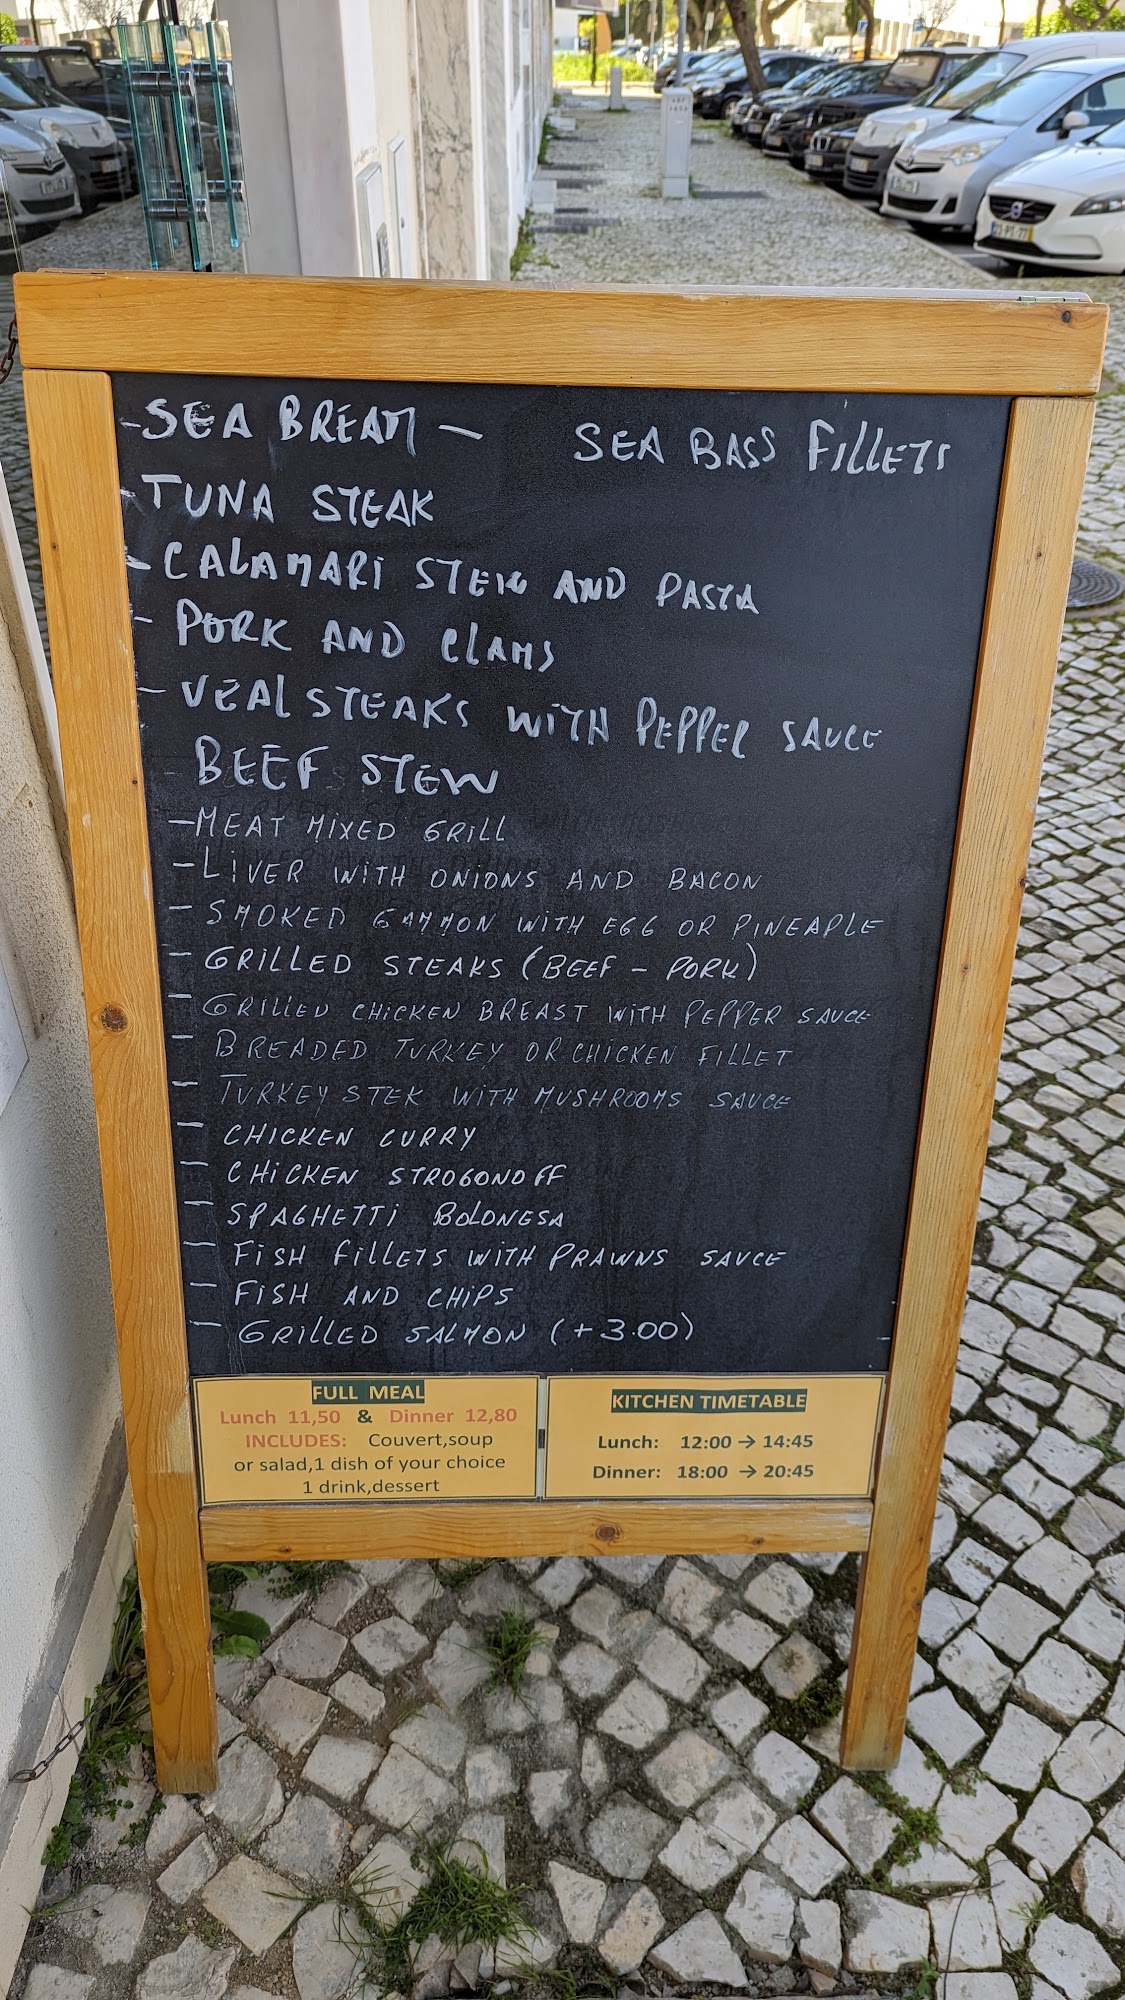 - SEA BREAM - SEA BASS FILLETS
- TUNA STEAK
- CALAMARI STEW AND PASTA
- PORK AND CLAMS
- VEAL STEAKS WITH PEPPER SAUCE
BEEF STEW
- MEAT MIXED GRILL
- LIVER WITH ONIONS AND BACON
- SMOKED GAMMON WITH EGG OR PINEAPLE
- GRILLED STEAKS (BEEF - PORK)
- GRILLED CHICKEN BREAST WITH PEPPER SAUCE
- BREADED TURKEY OR CHICKEN FILLET
- TURKEY STEK WITH MUSHROOMS SAUCE
- CHICKEN CURRY
- CHICKEN STROGONOFF
- SPAGHETTI BOLONESA
- FISH FILLETS WITH PRAWNS SAUCE
- FISH AND CHIPS
- GRILLED SALMON (+3.00)
FULL MEAL
Lunch 11,50 & Dinner 12,80
INCLUDES: Couvert,soup
or salad,1 dish of your choice
1 drink,dessert
KITCHEN TIMETABLE
Lunch: 12:00 → 14:45
Dinner: 18:00 → 20:45